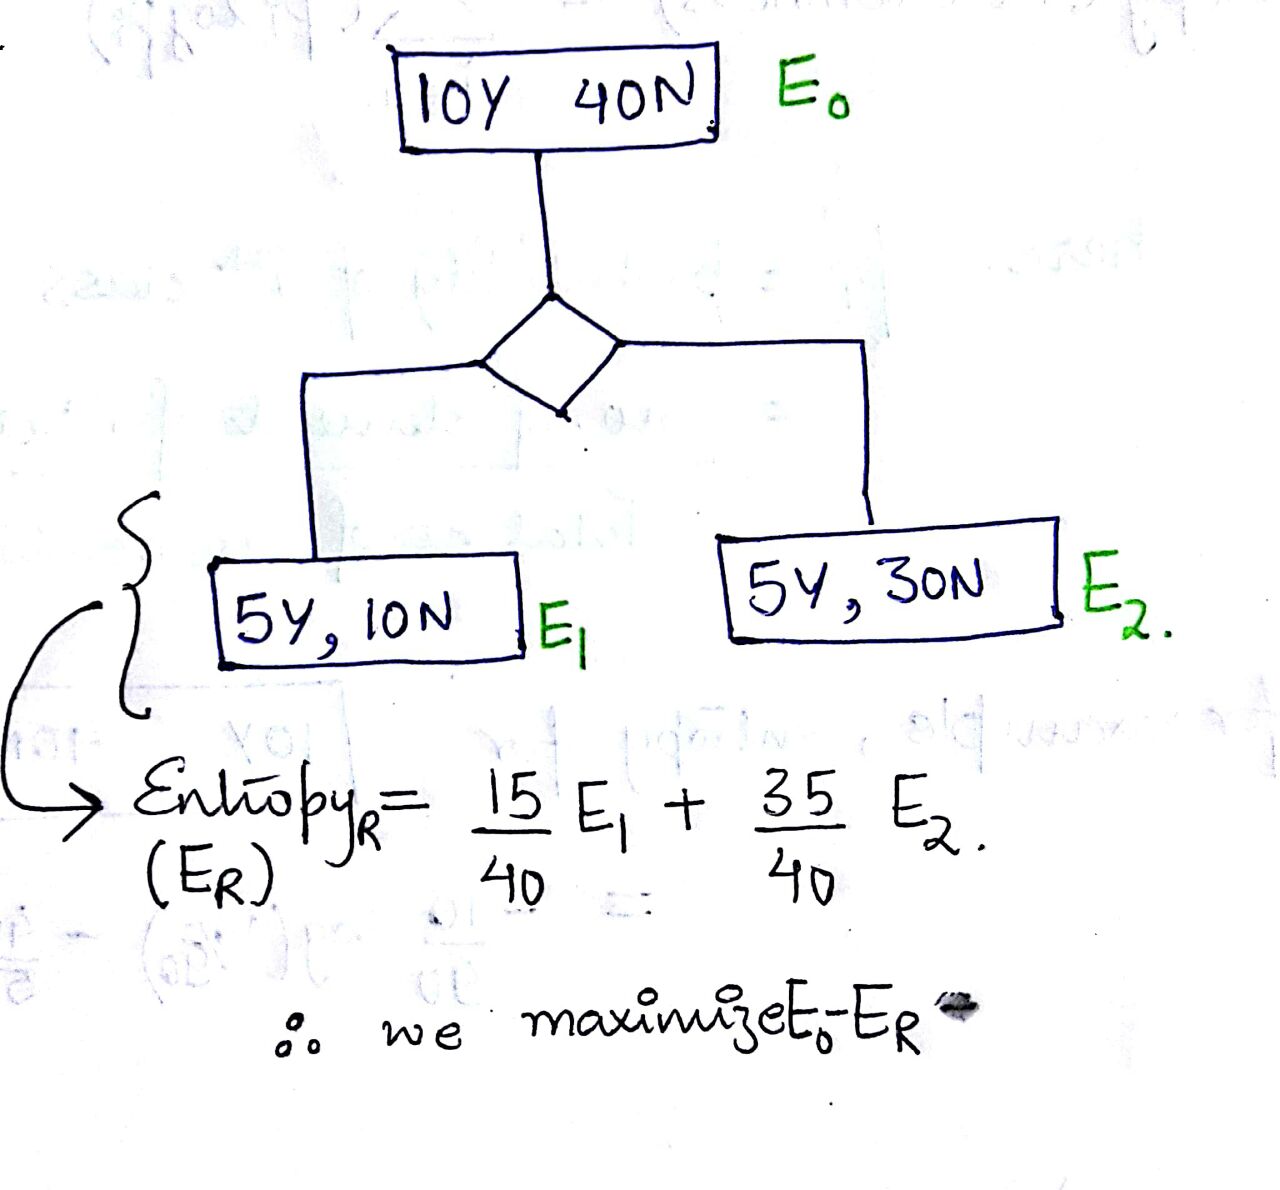 10Y 40N E₀
5Y, 10N E₁ 5Y, 30N E₂.
Entropy_R = 15/40 E₁ + 35/40 E₂.
(E_R)
∴ we maximize E₀-E_R